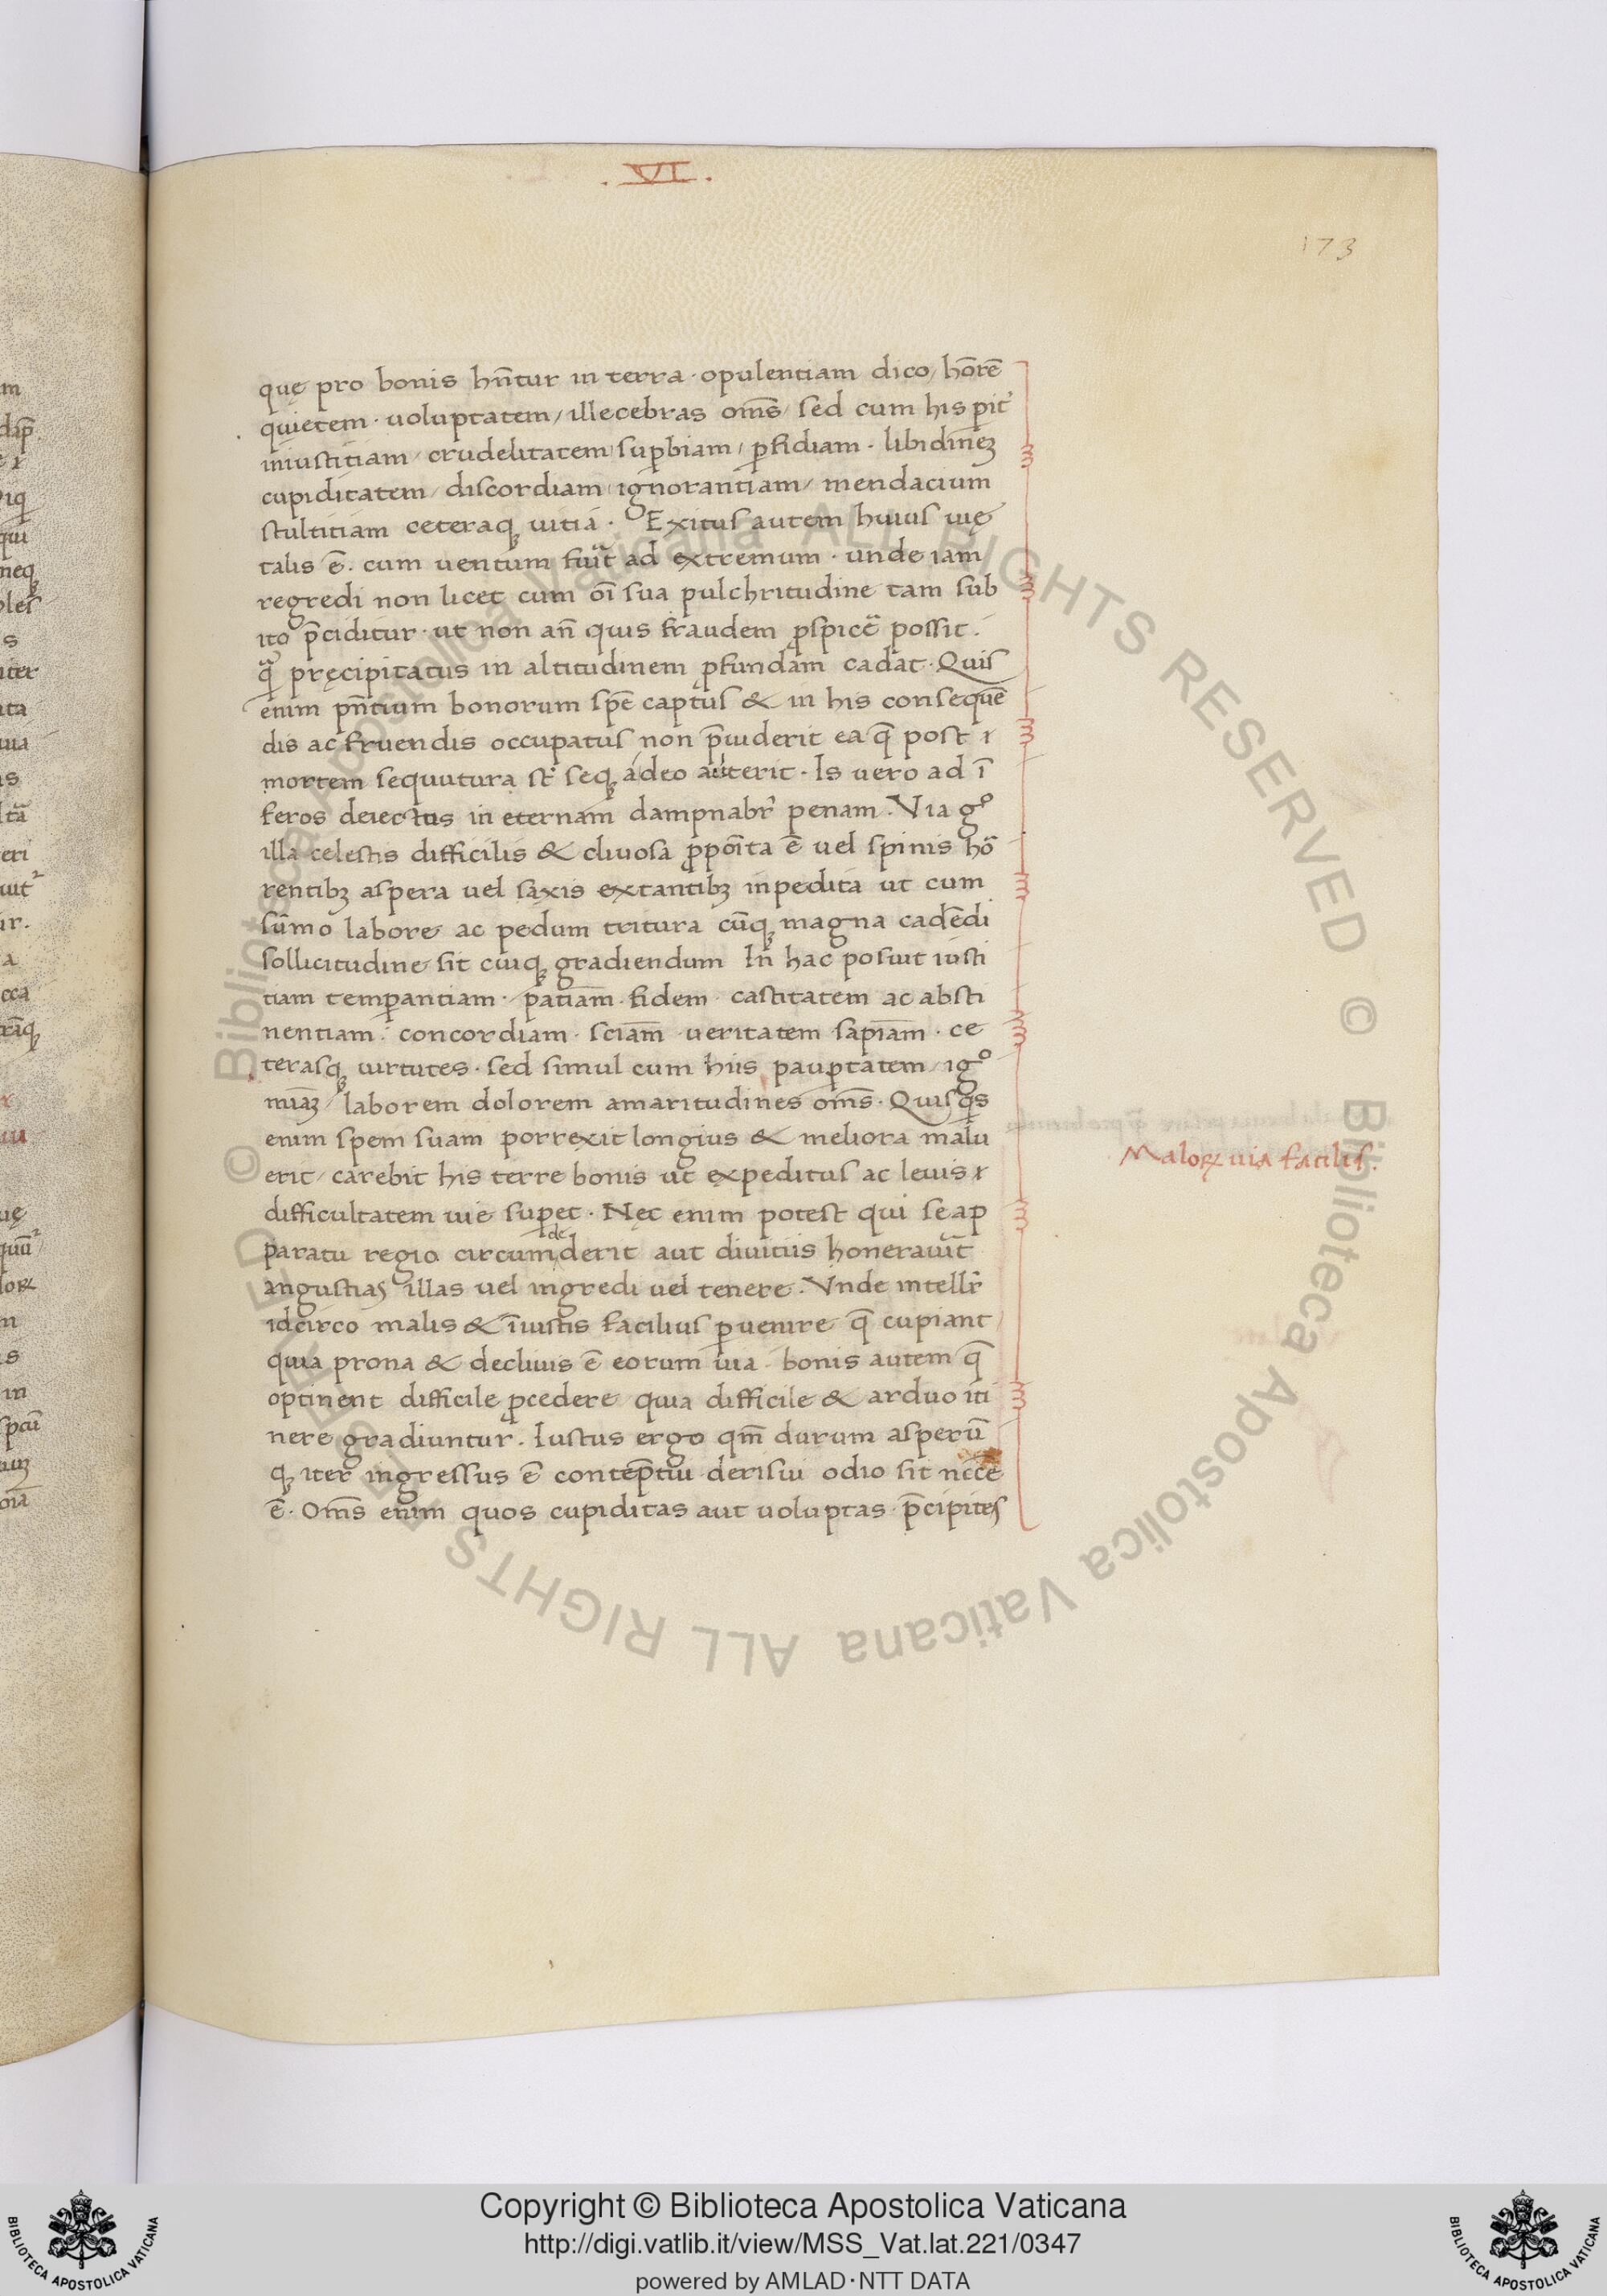 .VI.
173
quę pro bonis hñtur in terra · opulentiam dico / hōrē
quietem · uoluptatem / illecebras om̄s / sed cum his pit᷑
iniustitiam / crudelitatem / suꝑbiam / ꝑfidiam · libidineꝫ
cupiditatem / discordiam / ignorantiam / mendacium
stultitiam ceteraqꝫ uitia · Exitus autem huius uię
talis ē. cum uentum fuit̄ ad extremum · unde iam
regredi non licet cum oī sua pulchritudine tam sub
ito p̄ciditur · ut non an̄ quis fraudem ꝓspice᷑ possit.
qᷓ pręcipitatus in altitudinem ꝓfundam cadat · Quis
enim pn̄tium bonorum spē captus & in his consequē
dis ac fruendis occupatus non p̄uiderit ea q̄ post ⁊
mortem sequutura st᷑ seqꝫ a deo auterit · Is uero ad ī
feros deiectus in eternam dampnabr᷑ penam. Via gº
illa celestis difficilis & cliuosa ꝓpoīta ē uel spinis hō
rentibꝫ aspera uel saxis extantibꝫ inpedita ut cum
sūmo labore ac pedum tritura cūqꝫ magna cadēdi
sollicitudine sit cuiqꝫ gradiendum In̄ hac posuit iusti
tiam temꝑantiam · patiam̄ · fidem · castitatem ac absti
nentiam · concordiam · sciam̄ · ueritatem sapiam̄ · ce
terasqꝫ uirtutes · sed simul cum hiis pauꝑtatem / igº
miaꝫ / laborem dolorem amaritudines om̄s · Quisqͥs
enim spem suam porrexit longius & meliora malu
erit / carebit his terre bonis ut expeditus ac leuis ⁊
difficultatem uie suꝑet · Nęc enim potest qui se ap
paratu regio circumdederit aut diuitiis honerauit̄
angustias illas uel ingredi uel tenere. Vnde intellr᷑
idcirco malis & īiustis facilius ꝑuenire q̄ cupiant
quia prona & decliuis ē eorum uia · bonis autem q̄
optinent difficile ꝓcedere quia difficile & arduo iti
nere gradiuntur. Iustus ergo qm̄ durum asperū
qꝫ iter ingressus ē contēptui derisui odio sit nece
ē · Om̄s enim quos cupiditas aut uoluptas p̄cipites
Maloꝝ uia facilis.
Copyright © Biblioteca Apostolica Vaticana
http://digi.vatlib.it/view/MSS_Vat.lat.221/0347
powered by AMLAD·NTT DATA
BIBLIOTECA APOSTOLICA VATICANA
BIBLIOTECA APOSTOLICA VATICANA